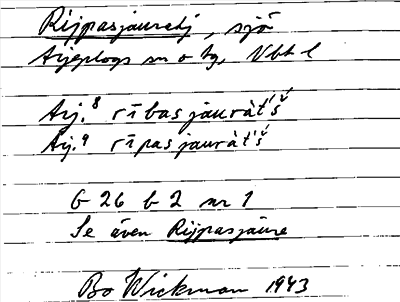 Rijpasjauratj, sjö
Arjeplogs sn o tg, Vbt l
Arj.⁸ rībasjauràt́š́
Arj.⁹ rīpasjauràt́š́
G 26 b 2 nr 1
Se även Rijpasjaure
Bo Wickman 1943